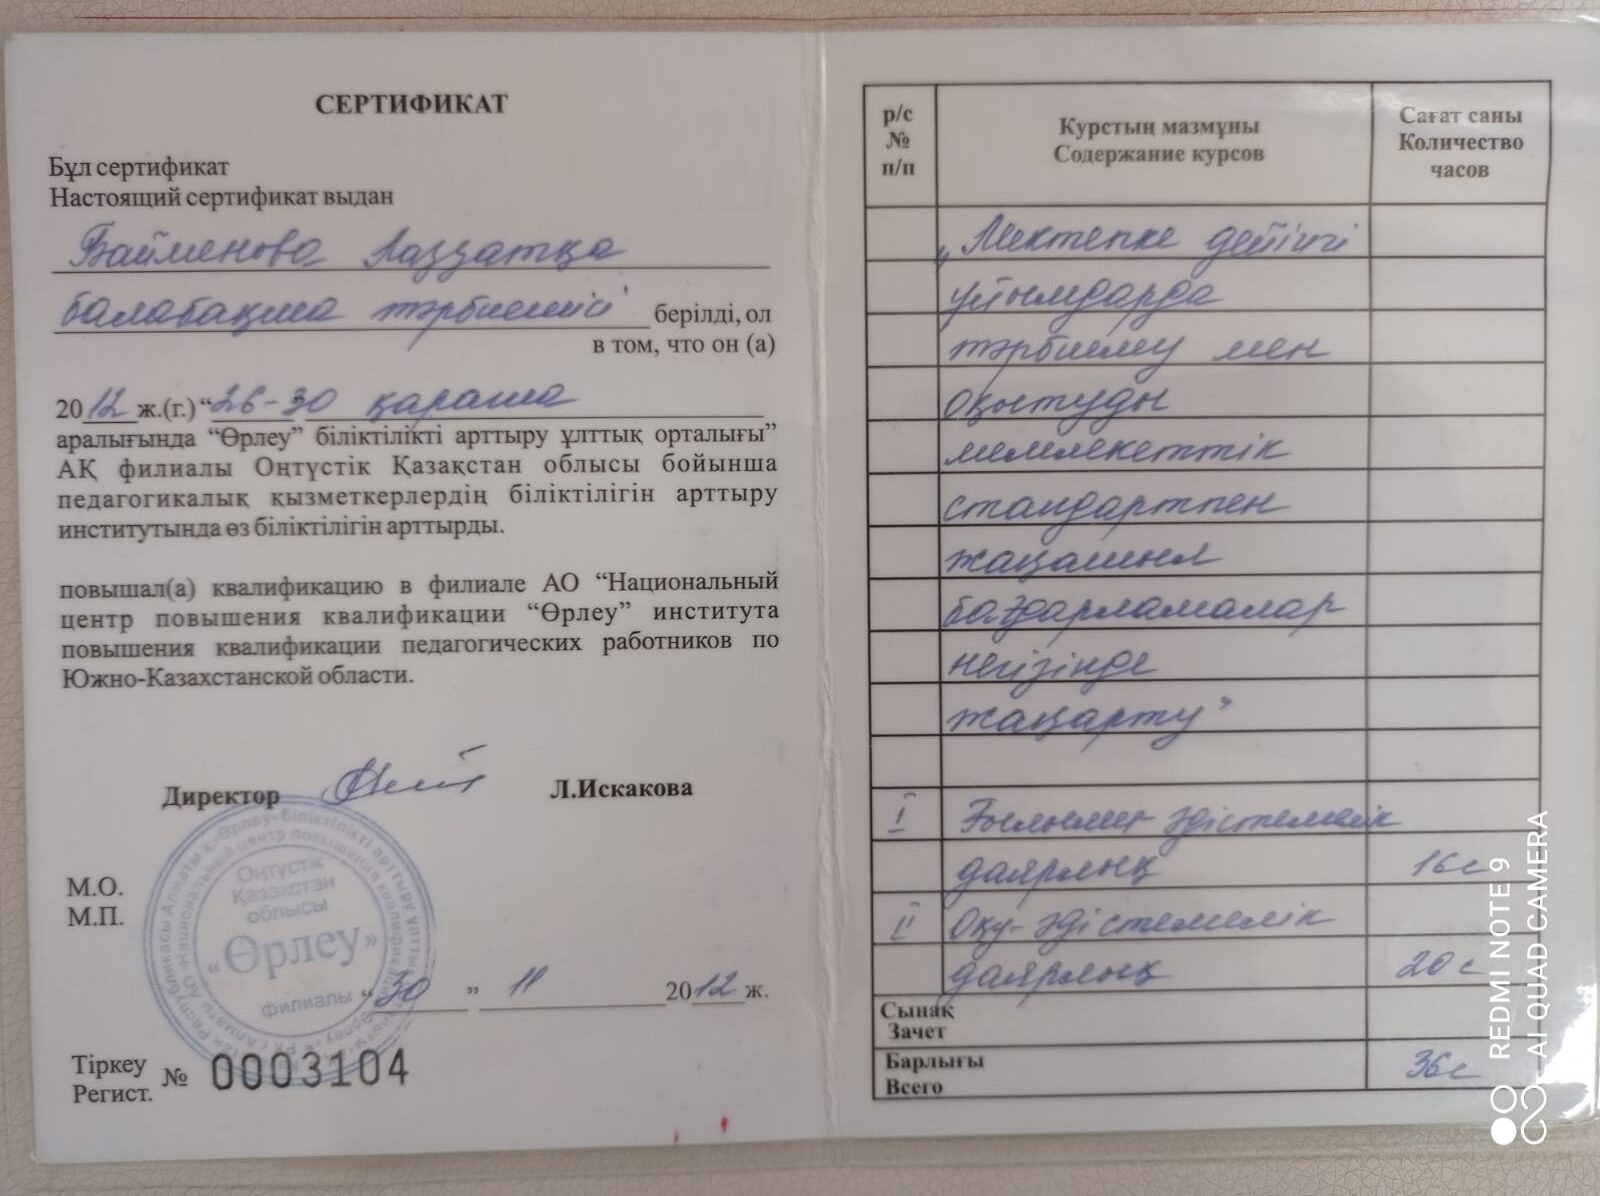 СЕРТИФИКАТ
Бұл сертификат
Настоящий сертификат выдан
Байменова Ляззатқа
балабақша тәрбиешісі берілді, ол
в том, что он (а)
2012 ж.(г.) “26-30 қараша
аралығында “Өрлеу” біліктілікті арттыру ұлттық орталығы”
АҚ филиалы Оңтүстік Қазақстан облысы бойынша
педагогикалық қызметкерлердің біліктілігін арттыру
институтында өз біліктілігін арттырды.
повышал(а) квалификацию в филиале АО “Национальный
центр повышения квалификации “Өрлеу” института
повышения квалификации педагогических работников по
Южно-Казахстанской области.
Директор Л.Искакова
М.О.
М.П.
Оңтүстік
Қазақстан
облысы
«Өрлеу»
филиалы
“30” 11 2012 ж.
Тіркеу
Регист. № 0003104
р/с
№
п/п
Курстың мазмұны
Содержание курсов
Сағат саны
Количество
часов
„Мектепке дейінгі
ұйымдарда
тәрбиелеу мен
оқытуды
мемлекеттік
стандартпен
жаңашыл
бағдарламалар
негізінде
жаңарту”
I Ғылыми әдістемелік
даярлық 16с
II Оқу-әдістемелік
даярлық 20с
Сынақ
Зачет
Барлығы
Всего 36с
REDMI NOTE 9
AI QUAD CAMERA